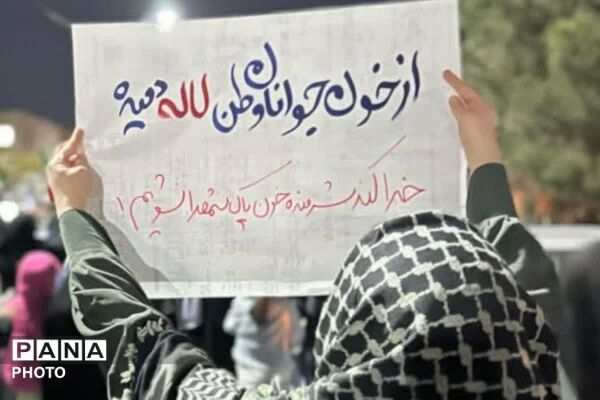 از خون جوانان وطن لاله دمیده
خدا کند شرمنده خون پاک شهدا نشویم!
PANA
PHOTO